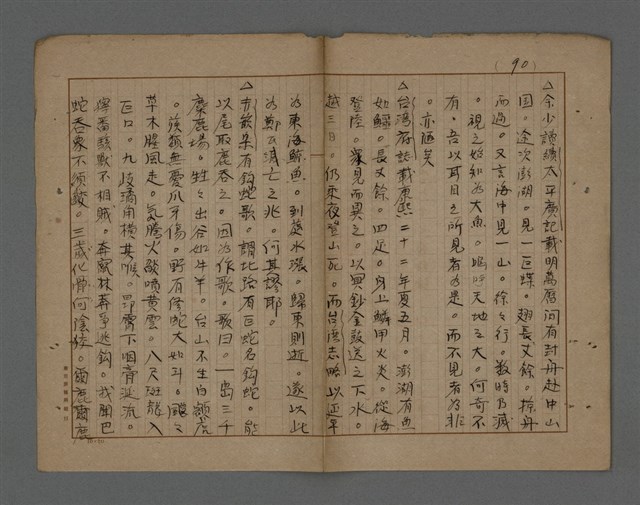 (90)
余少讀續太平廣記載明萬曆間有封舟赴中山
国。途次澎湖。見一巨蝶。翅長丈餘。掠舟
而過。又言海中見一山。徐々行。数時乃滅
。視之始知為大魚。嗚呼天地之大。何奇不
有。吾以耳目之所見者為是。而不見者為非
。亦陋矣
△台灣府誌載康熙二十二年夏五月。澎湖有魚
如鱷。長丈餘。四足。身上鱗甲火炎。從海
登陸。衆見而異之。以冥鈔金鼓送之下水。
越三日。仍乘夜登山死。而台湾志略以延平
為東海鯨魚。到處水漲。歸東則逝。遂以此
為鄭氏滅亡之兆。何其謬耶。
△亦有鈎蛇歌。謂北路有巨蛇名鈎蛇。能
以尾取鹿吞之。因為作歌。歌曰。一島三千
麋鹿場。甡々出谷如牛羊。台山不生白額虎
。族類無憂爪牙傷。野有修蛇大如斗。颼々
草木腥風走。氣騰火燄噴黃雲。八尺斑龍入
巨口。九岐瑇角橫其喉。昂霄下咽膏涎流。
獰番駭獸不相賊。奔竄林莽爭逃鈎。我聞巴
蛇吞象不須齩。三歲化骨何陰狡。爾鹿爾鹿